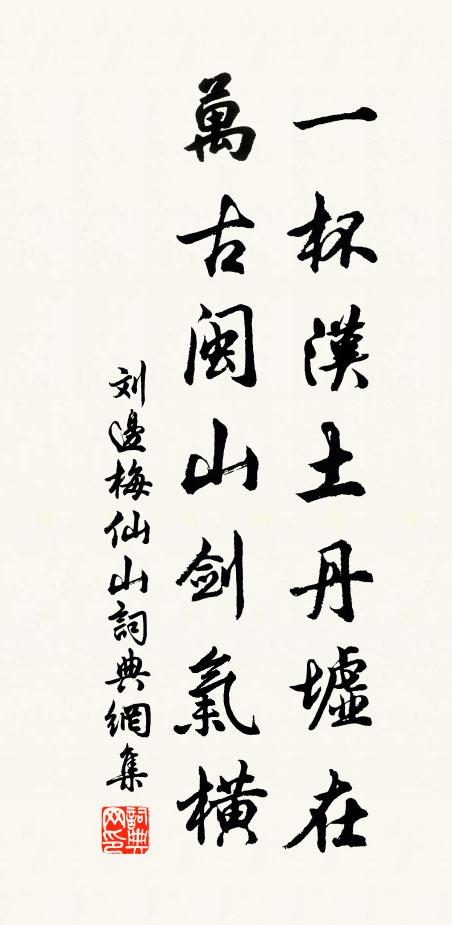 一杯漢土丹墟在
萬古閩山劍氣橫
刘邊梅仙山詞典網集
詞典网印